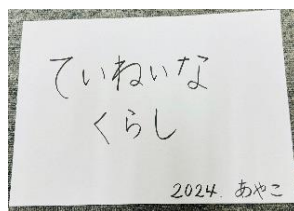 ていねいな
くらし
2024. あやこ